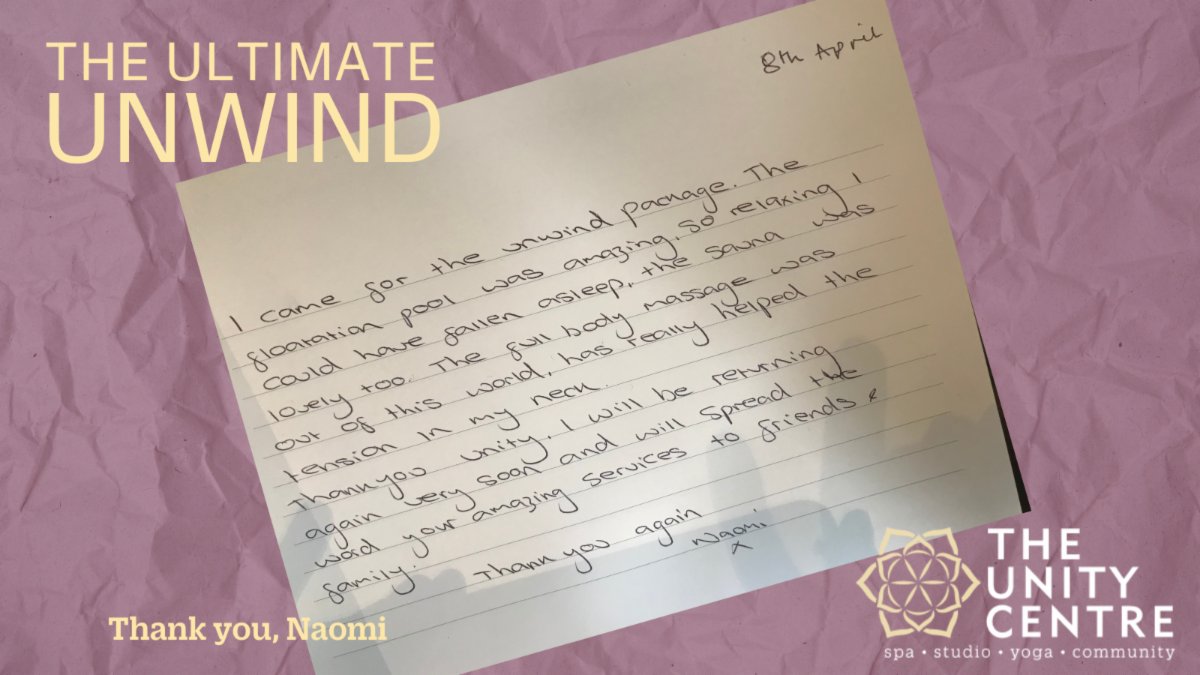 THE ULTIMATE
UNWIND
8th April
I came for the unwind package. The
floatation pool was amazing, so relaxing I
could have fallen asleep, the sauna was
lovely too. The full body massage was
out of this world, has really helped the
tension in my neck.
Thankyou unity, I will be returning
again very soon and will spread the
word your amazing services to friends &
family.
Thank you again
Naomi
x
Thank you, Naomi
THE
UNITY
CENTRE
spa • studio • yoga • community